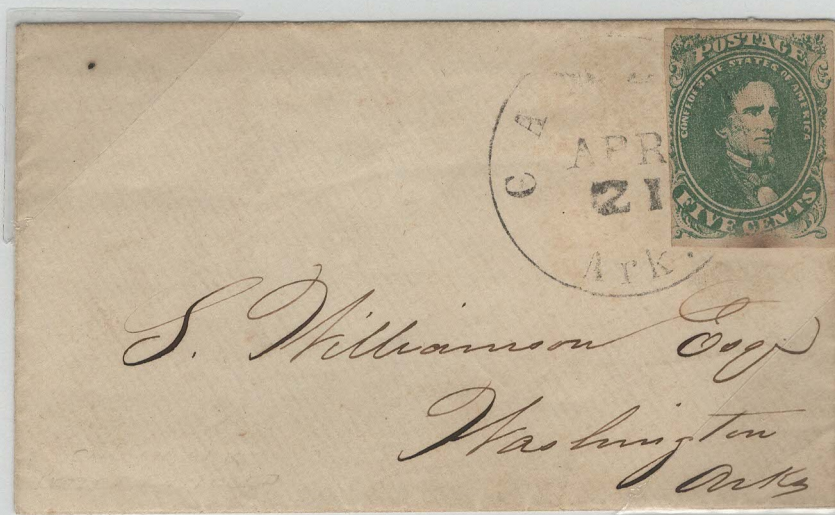 POSTAGE
CONFEDERATE STATES OF AMERICA
FIVE CENTS
CA
APR
21
Ark.
S. Williamson Esqr
Washington
Arks